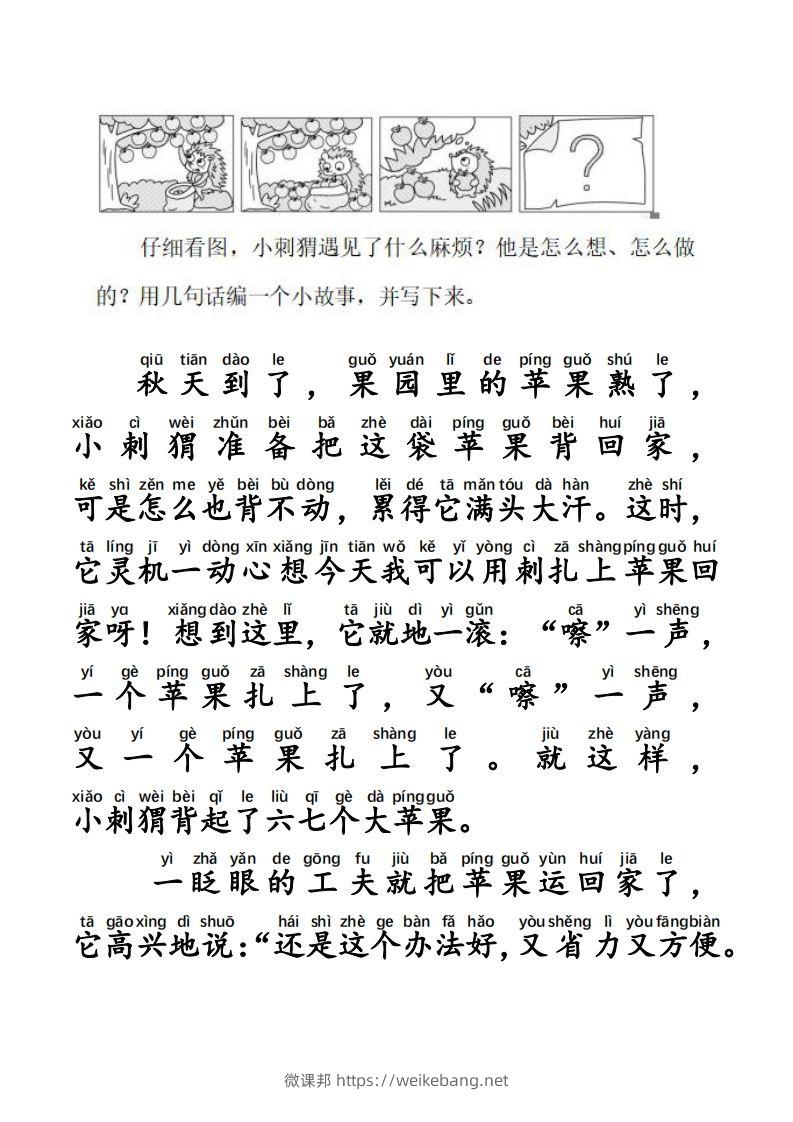 ?
仔细看图，小刺猬遇见了什么麻烦？他是怎么想、怎么做
的？用几句话编一个小故事，并写下来。
qiū tiān dào le guǒ yuán lǐ de píng guǒ shú le
秋天到了，果园里的苹果熟了，
xiǎo cì wèi zhǔn bèi bǎ zhè dài píng guǒ bèi huí jiā
小刺猬准备把这袋苹果背回家，
kě shì zěn me yě bèi bù dòng lěi dé tā mǎn tóu dà hàn zhè shí
可是怎么也背不动，累得它满头大汗。这时，
tā líng jī yì dòng xīn xiǎng jīn tiān wǒ kě yǐ yòng cì zā shàng píng guǒ huí
它灵机一动心想今天我可以用刺扎上苹果回
jiā ya xiǎng dào zhè lǐ tā jiù dì yì gǔn cā yì shēng
家呀！想到这里，它就地一滚：“嚓”一声，
yí gè píng guǒ zā shàng le yòu cā yì shēng
一个苹果扎上了，又“嚓”一声，
yòu yí gè píng guǒ zā shàng le jiù zhè yàng
又一个苹果扎上了。就这样，
xiǎo cì wèi bèi qǐ le liù qī gè dà píng guǒ
小刺猬背起了六七个大苹果。
yì zhǎ yǎn de gōng fu jiù bǎ píng guǒ yùn huí jiā le
一眨眼的工夫就把苹果运回家了，
tā gāo xìng dì shuō hái shì zhè ge bàn fǎ hǎo yòu shěng lì yòu fāng biàn
它高兴地说：“还是这个办法好，又省力又方便。
微课邦 https://weikebang.net